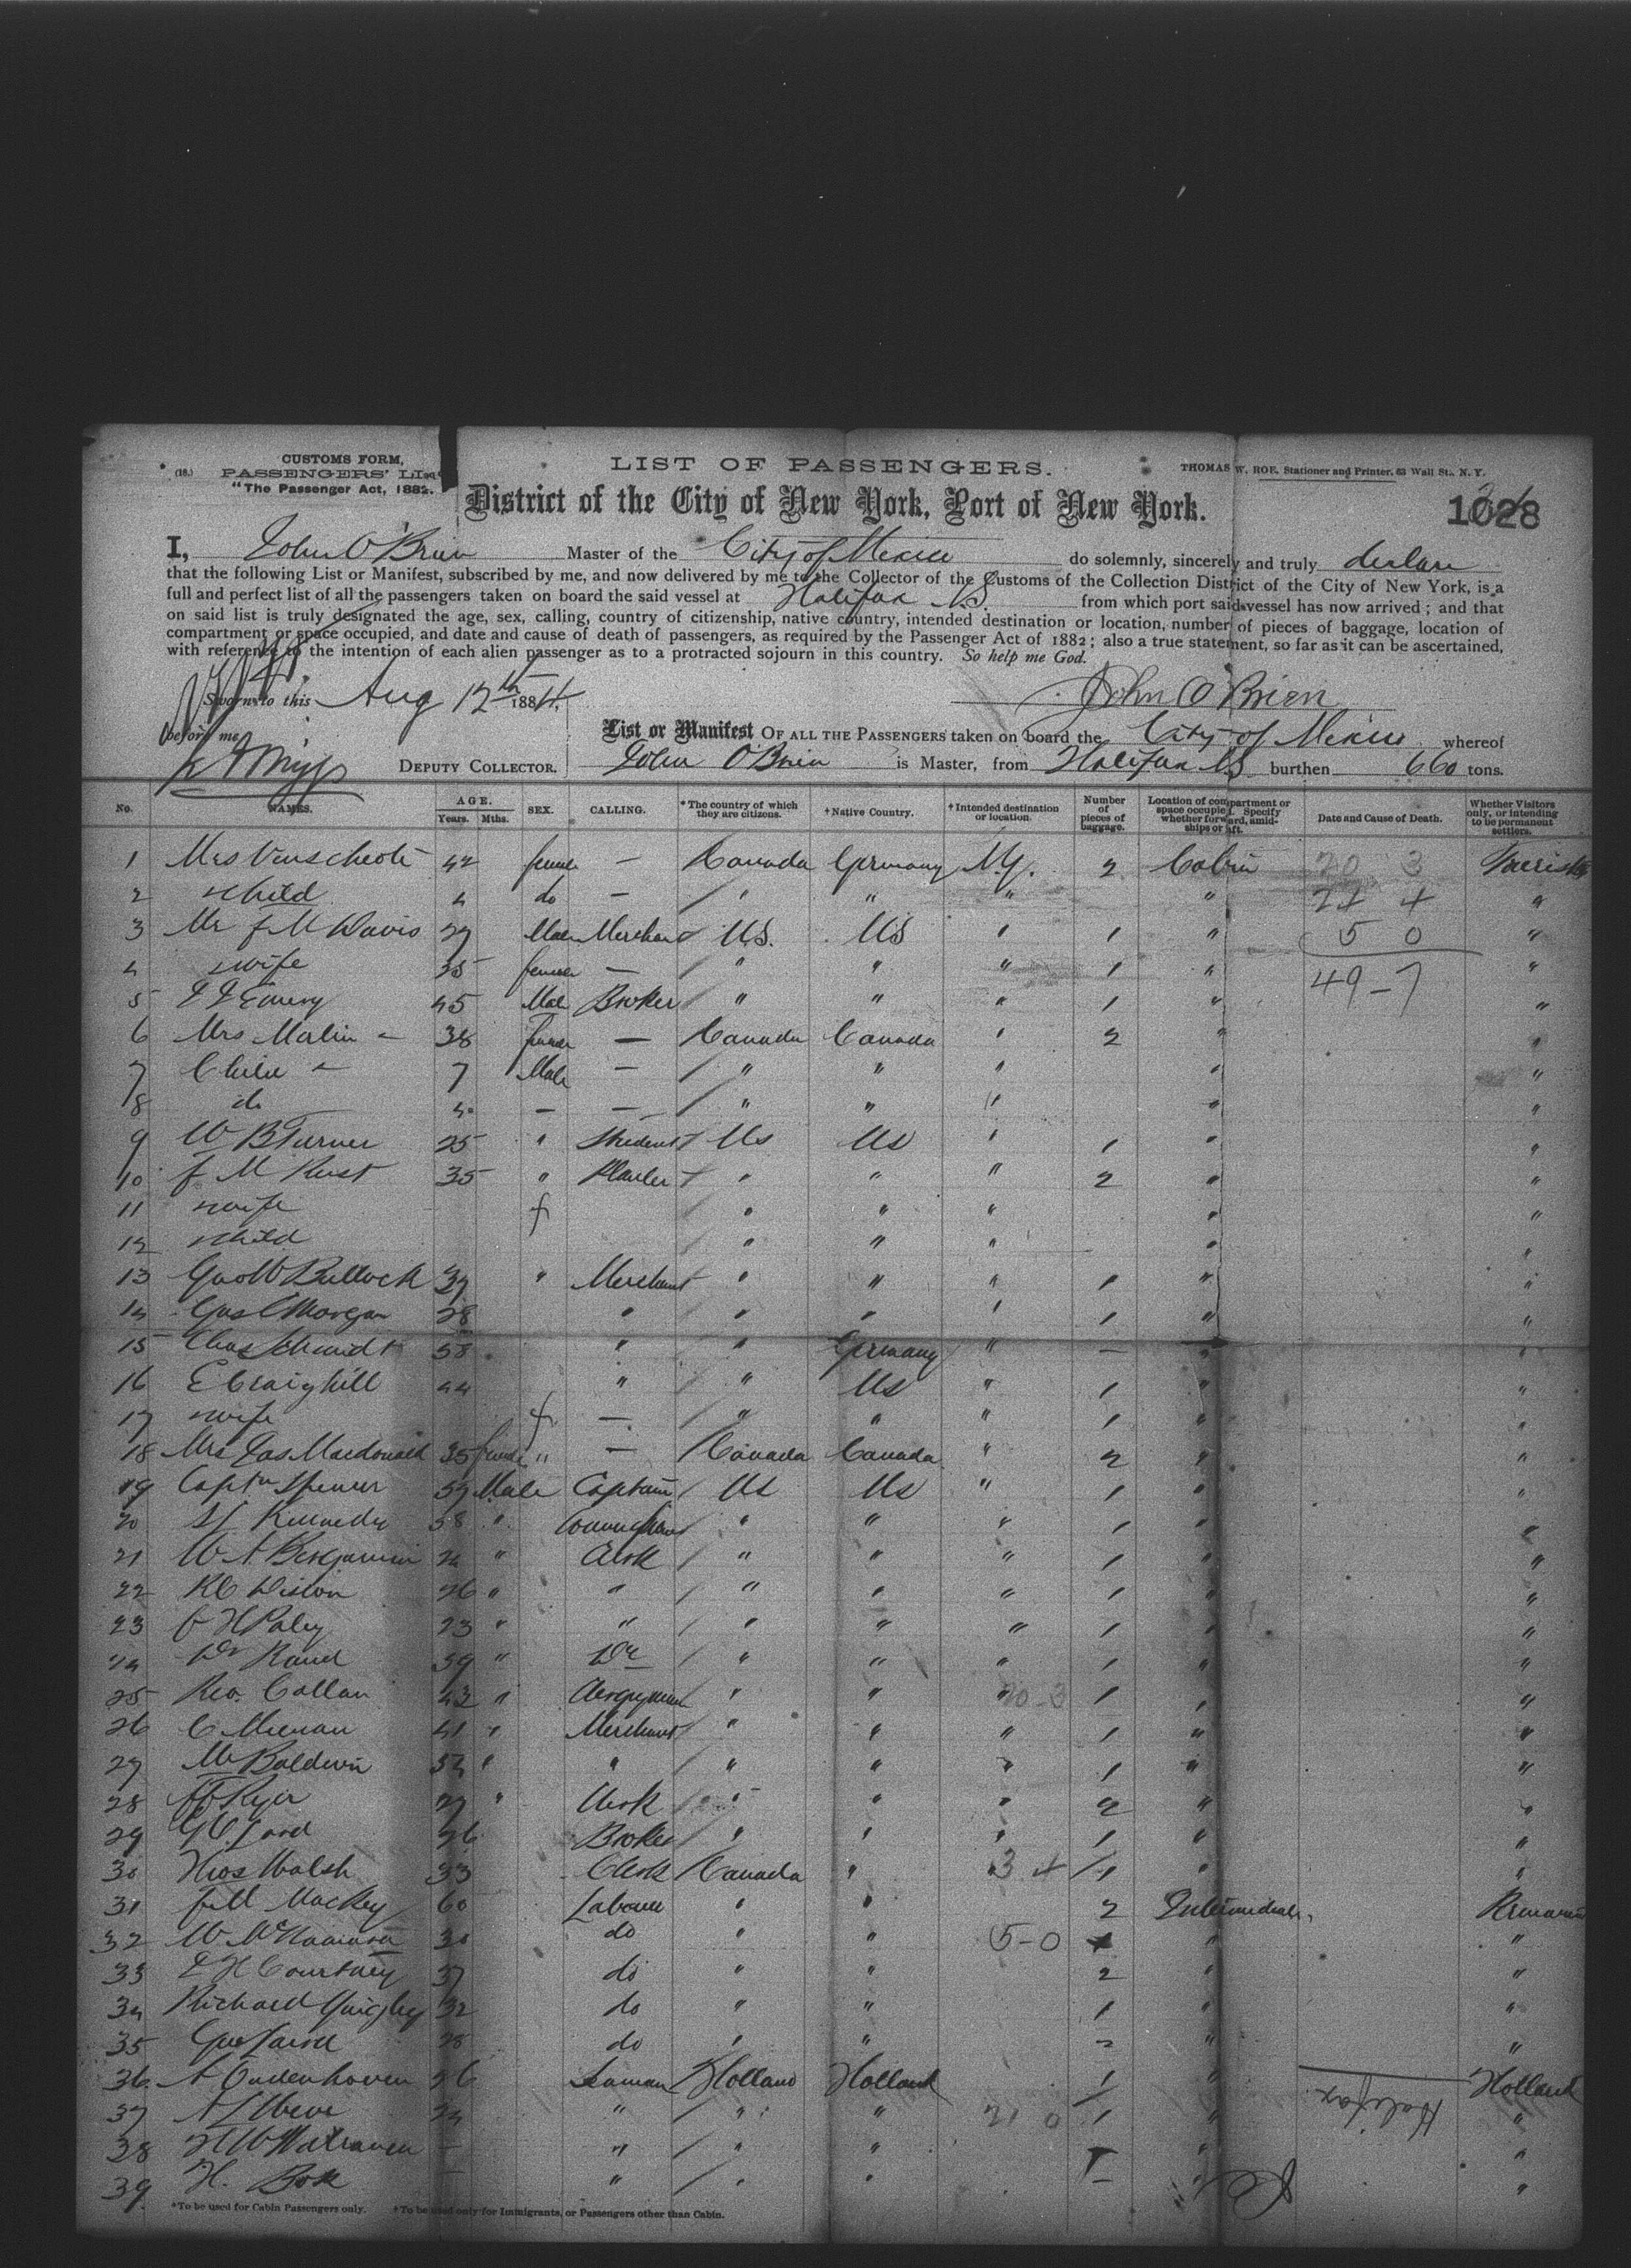 CUSTOMS FORM,
(18.) PASSENGERS'
"The Passenger Act, 1882.
LIST OF PASSENGERS.
THOMAS W. ROE, Stationer and Printer, 63 Wall St., N. Y.
District of the City of New York, Port of New York.
1028
I, John O'Brien Master of the City of Mexico do solemnly, sincerely and truly declare
that the following List or Manifest, subscribed by me, and now delivered by me to the Collector of the Customs of the Collection District of the City of New York, is a
full and perfect list of all the passengers taken on board the said vessel at Halifax N.S. from which port said vessel has now arrived; and that
on said list is truly designated the age, sex, calling, country of citizenship, native country, intended destination or location, number of pieces of baggage, location of
compartment or space occupied, and date and cause of death of passengers, as required by the Passenger Act of 1882; also a true statement, so far as it can be ascertained,
with reference to the intention of each alien passenger as to a protracted sojourn in this country. So help me God.
Sworn to this Aug 12th 1884,
John O'Brien
before me
DEPUTY COLLECTOR.
List or Manifest OF ALL THE PASSENGERS taken on board the City of Mexico whereof
John O'Brien is Master, from Halifax NS burthen 660 tons.
No. NAMES. AGE. Years. Mths. SEX. CALLING. *The country of which they are citizens. †Native Country. †Intended destination or location. Number of pieces of baggage. Location of compartment or space occupied. Specify whether forward, amidships or aft. Date and Cause of Death. Whether Visitors only, or intending to be permanent settlers.
1 Mrs 42 female — Canada Germany N.Y. 2 Cabin 20 3
2 child 4 do — " " " " 24 4 "
3 Mr J M Davis Male Merchant U.S. US " 1 " 5 0 "
4 wife 35 female — " " " 1 " 49-7 "
5 Emery 45 Male Broker " " " 1 " "
6 Mrs — 38 female — Canada Canada " 2 " "
7 Child 7 Male — " " " "
8 do 4 — — " " " " "
9 W B Turner 25 " Student US US " 1 " "
10 J M Rust 35 " " " " 2 " "
11 wife f " " " " "
12 child " " " " "
13 Geo W Bullock " Merchant " " " 1 " "
14 Morgan 28 " " " " 1 " "
15 Chas Schmidt 58 " " Germany " — " "
16 E Craighill 44 " " US " 1 " "
17 wife f — " " " 1 " "
18 Mrs Jas Macdonald 35 female " — Canada Canada " 2 " "
19 Captn Spencer Male Captain US US " 1 " "
20 Kennedy 38 " " " " 1 " "
21 W A Benjamin 24 " Clerk " " " 1 " "
22 26 " " " " " 1 " "
23 23 " " " " " 1 " "
24 Dr Rand 39 " Dr " " " 1 " "
25 Rev. Callan 43 " Clergyman " " 20-3 1 " "
26 C 41 " Merchant " " " 1 " "
27 Mr Baldwin " " " " " 1 " "
28 27 " Clerk " " " 2 " "
29 Lord 26 Broker " " " 1 " "
30 Thos Walsh 33 Clerk Canada " 3 4 1 " "
31 Mackey 60 Labourer " " 2 Intermediate
32 W 30 do " " 5-0 " "
33 Courtney 37 do " " 2 " "
34 Richard Quigley 32 do " " 1 " "
35 Geo 28 do " " " "
36. A Oudenhoven 26 Holland Holland 1 " Holland
37 24 " " " 21 0 1 " Halifax "
38 — " " " " "
39 H. Bok — " " " — " "
*To be used for Cabin Passengers only. †To be used only for Immigrants, or Passengers other than Cabin.